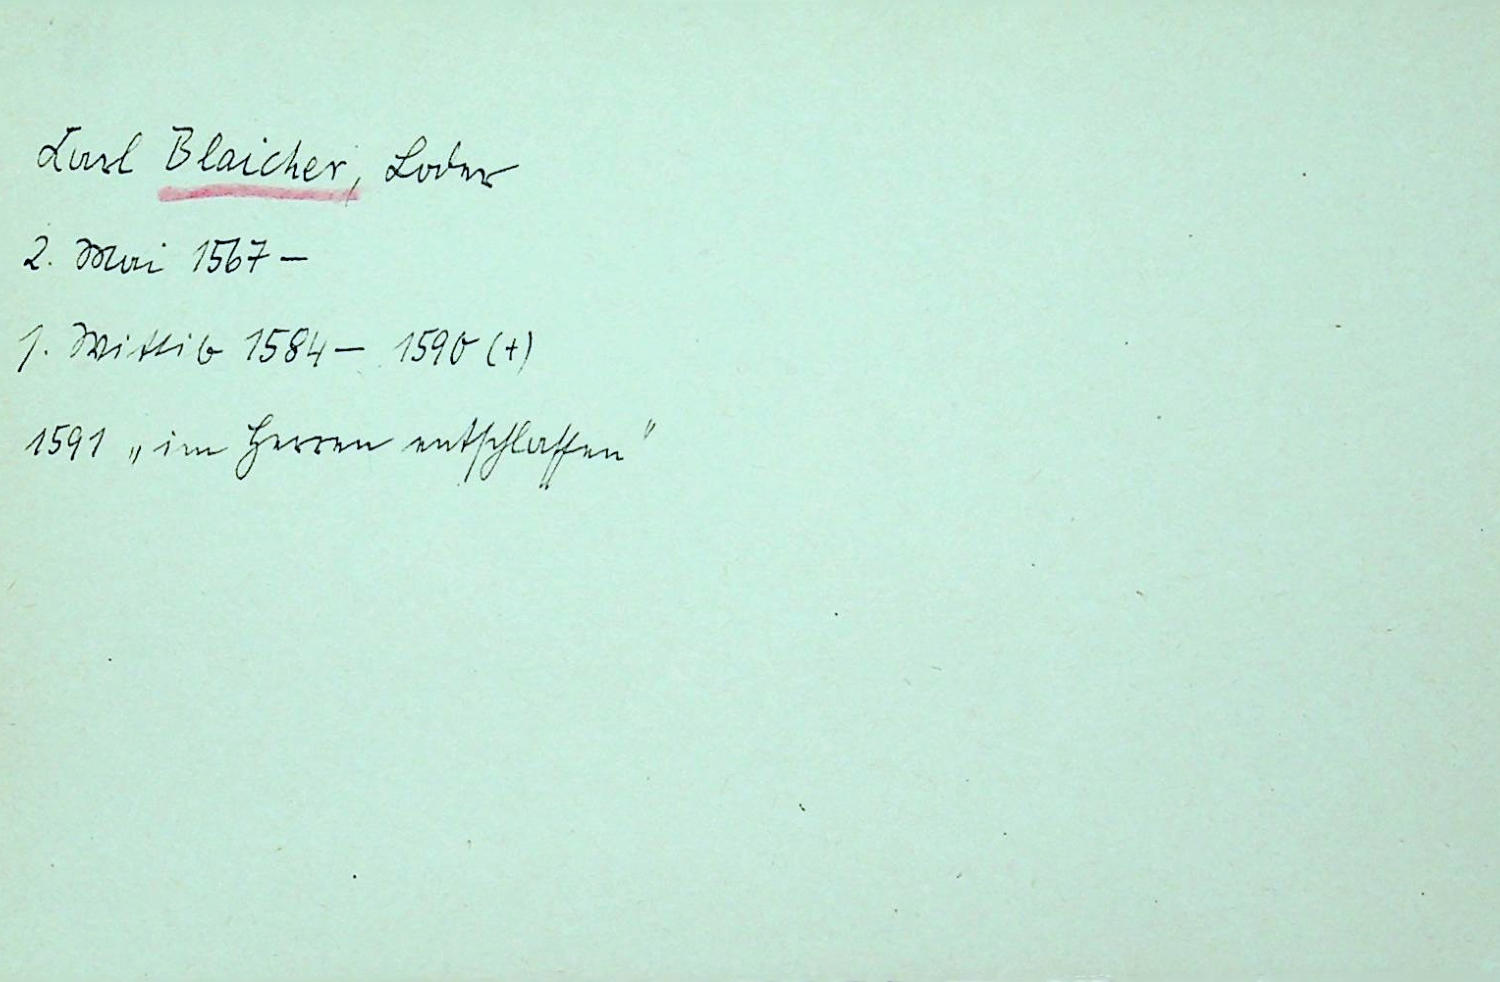 Karl Blaicher, Loder
2. Mai 1567 –
1. Wittib 1584 – 1590 (+)
1591 „im Herren entschlaffen"